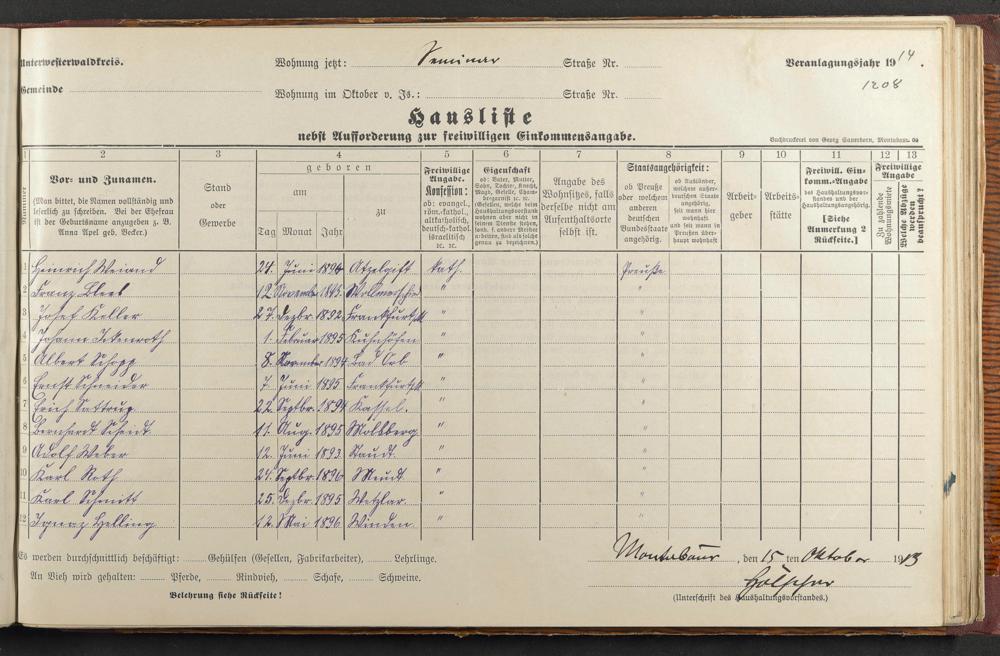 Unterwesterwaldkreis.
Wohnung jetzt: Seminar Straße Nr.
Veranlagungsjahr 1914.
1208
Gemeinde
Wohnung im Oktober v. Js.: Straße Nr.
Hausliste
nebst Aufforderung zur freiwilligen Einkommensangabe.
Buchdruckerei von Georg Sauerborn, Montabaur.
1 2 3 4 5 6 7 8 9 10 11 12 13
Nummer
Vor- und Zunamen.
(Man bittet, die Namen vollständig und
leserlich zu schreiben. Bei der Ehefrau
ist der Geburtsname anzugeben z. B.
Anna Apel geb. Becker.)
Stand
oder
Gewerbe
geboren
am
zu
Tag Monat Jahr
Freiwillige
Angabe.
Konfession:
ob: evangel.,
röm.-kathol.,
altkatholisch,
deutsch-kathol.
israelitisch
ec. ec.
Eigenschaft
ob: Vater, Mutter,
Sohn, Tochter, Knecht,
Magd, Geselle, Cham-
bergarnist ec. ec.
Angabe des
Wohnsitzes, falls
derselbe nicht am
Aufenthaltsorte
selbst ist.
Staatsangehörigkeit:
ob Preuße
oder welchem
anderen
deutschen
Bundesstaate
angehörig.
ob Ausländer,
welchem außer-
deutschen Staate
angehörig,
seit wann hier
wohnhaft
und seit wann in
Preußen über-
haupt wohnhaft
Arbeit-
geber
Arbeits-
stätte
Freiwill. Ein-
komm.-Angabe
des Haushaltungsvor-
standes und der
Haushaltungsangehörig.
[Siehe
Anmerkung 2
Rückseite.]
Freiwillige
Angabe.
Zu zahlende
Wohnungsmiete
Welche Abzüge
werden
beansprucht?
1 Heinrich Weiand 24. Juni 1894 Atzelgift kath. Preuße
2 Franz 12 November 1895 "  "
3 Josef Keller 27. Dezbr. 1892 Frankfurt " "
4 Johann Ickenroth 1. Februar 1895 Kuhnhöfen " "
5 Albert Schopp 8. November 1894 Bad Orb " "
6 Ernst Schneider 7. Juni 1895 Frankfurt " "
7 Erich Sattrup 22. Septbr. 1894 Kassel. " "
8 Bernhardt Scheidt 11. Aug. 1895 Molsberg " "
9 Adolf Weber 12. Juni 1893 Staudt. " "
10 Karl Roth 24. Septbr. 1896 Meudt " "
11 Karl Schmitt 25. Dezbr. 1895 Wetzlar. " "
12 Ignaz Helling 12. Mai 1896 Winden " "
Es werden durchschnittlich beschäftigt: Gehülfen (Gesellen, Fabrikarbeiter), Lehrlinge.
Montabaur, den 15 ten Oktober 1913
An Vieh wird gehalten: Pferde, Rindvieh, Schafe, Schweine.
Hölscher
Belehrung siehe Rückseite!
(Unterschrift des Haushaltungsvorstandes.)